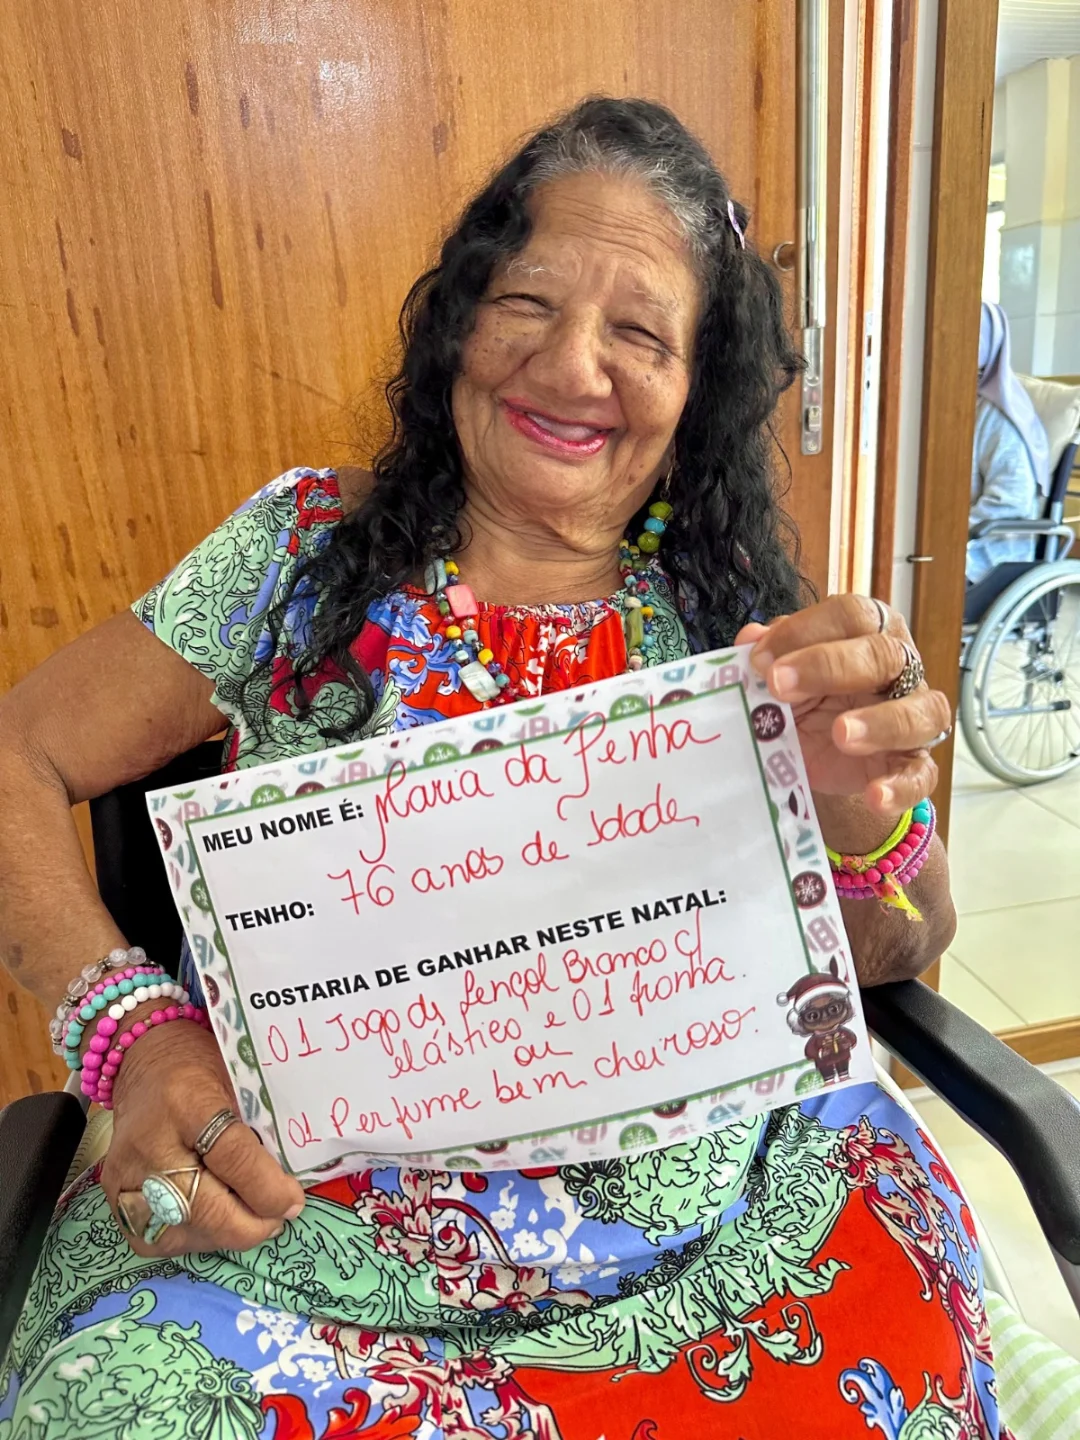 MEU NOME É: Maria da Penha
TENHO: 76 anos de Idade,
GOSTARIA DE GANHAR NESTE NATAL:
01 Jogo de Lençol Branco c/
elástico e 01 fronha.
ou
01 Perfume bem cheiroso.